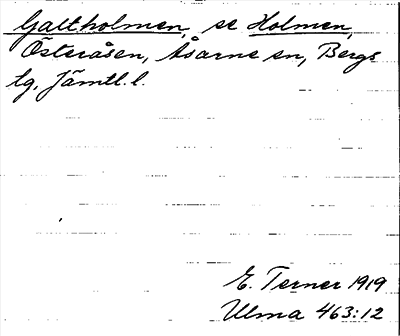 Galtholmen, se Holmen,
Österåsen, Åsarne sn, Bergs
tg, Jämtl. l.
E. Terner 1919
Ulma 463:12